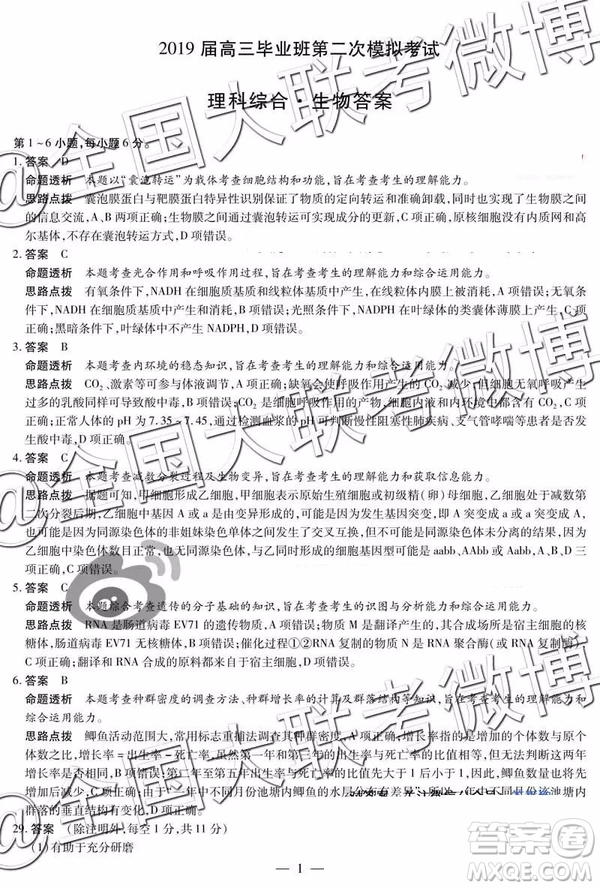 2019 届高三毕业班第二次模拟考试
理科综合·生物答案
第 1~6 小题,每小题 6 分。
1. 答案 D
命题透析 本题以“囊泡转运”为载体考查细胞结构和功能,旨在考查考生的理解能力。
思路点拨 囊泡膜蛋白与靶膜蛋白特异性识别保证了物质的定向转运和准确卸载,同时也实现了不同结构之间
的信息交流,A、B 两项正确;生物膜可通过囊泡转运可实现成分的更新,C 项正确。原核细胞没有内质网和高
尔基体,不存在囊泡转运方式,D 项错误。
2. 答案 C
命题透析 本题考查光合作用和呼吸作用过程,旨在考查考生的理解能力和综合运用能力。
思路点拨 有氧条件下,NADH 在细胞质基质和线粒体内产生,在线粒体内膜上被消耗,A 项错误;无氧条
件下,NADH 在细胞质基质中产生和被消耗,B 项错误;光照条件下,NADPH 在叶绿体的类囊体薄膜上产生,C
项正确;黑暗条件下,叶绿体中不产生 NADPH,D 项错误。
3. 答案 B
命题透析 本题考查内环境的稳态知识,旨在考查考生的理解能力和综合运用能力。
思路点拨 CO₂、激素等可参与体液调节,A 项正确;缺氧会使呼吸作用产生的 CO₂ 减少,但无氧呼吸产生
过多的乳酸同样可导致酸中毒,B 项错误;细胞外液渗透压、神经和内环境中都存在
正确;正常人体的 pH 为 7.35~7.45,通过检测血浆的 pH 可判断慢性阻塞性肺疾病、支气管哮喘等患者是否发
生酸中毒,D 项正确。
4. 答案 C
命题透析 本题考查减数分裂过程及生物变异,旨在考查考生的理解能力和获取信息能力。
思路点拨 据题可知,甲细胞形成乙细胞,甲细胞为原始生殖细胞或初级精(卵)母细胞,乙细胞处于减数第
二次分裂后期,乙细胞中基因 A 或 a 是由变异形成的,可能是发生了基因突变,即 A 突变成 a 或 a 突变成 A,
也可能是因为同源染色体的非姐妹染色单体之间发生了交叉互换,但不可能是同源染色体未分离的结果,因为
乙细胞中染色体数目正常,也无同源染色体,A、B 项错误,C 项正确;甲细胞的基因型是 AaBb 或 AaBb,D 项
三项正确,C 项错误。
5. 答案 C
命题透析 本题综合考查遗传的分子基础的知识,旨在考查考生的识图与分析能力和综合运用能力。
思路点拨 RNA 是肠道病毒 EV71 的遗传物质,A 项正确;物质 M 是蛋白质,其合成场所是宿主细胞的核
糖体,肠道病毒 EV71 无核糖体,B 项错误;催化过程①②RNA 复制的物质 N 是 RNA 聚合酶(或 RNA 复制酶),C
项正确;翻译和 RNA 合成的原料都来自于宿主细胞,D 项错误。
6. 答案 B
命题透析 本题考查种群密度的调查方法、种群增长率的计算及群落结构等知识,旨在考查考生的理解能力。
思路点拨 鲫鱼活动范围大,常用标志重捕法调查其种群密度,A 项正确;增长率是指增加的个体数与原个
体数的比值,增长率=出生率-死亡率,图示中是出生率与死亡率的比值相等,但仅凭比值相等无法判断这两年
的增长率是否相等,B 项错误;第五年出生率与死亡率的比值先大于 1 后小于 1,
量增加,C 项正确;不同月份池塘内鲫鱼的水层分布有差异
群落的垂直结构有关,D 项正确。
29. 答案 (除注明外,每空 1 分,共 11 分)
(1)有助于充分研磨
— 1 —
@全国大联考微博
@全国大联考微博
@全国大联考微博
答案圈